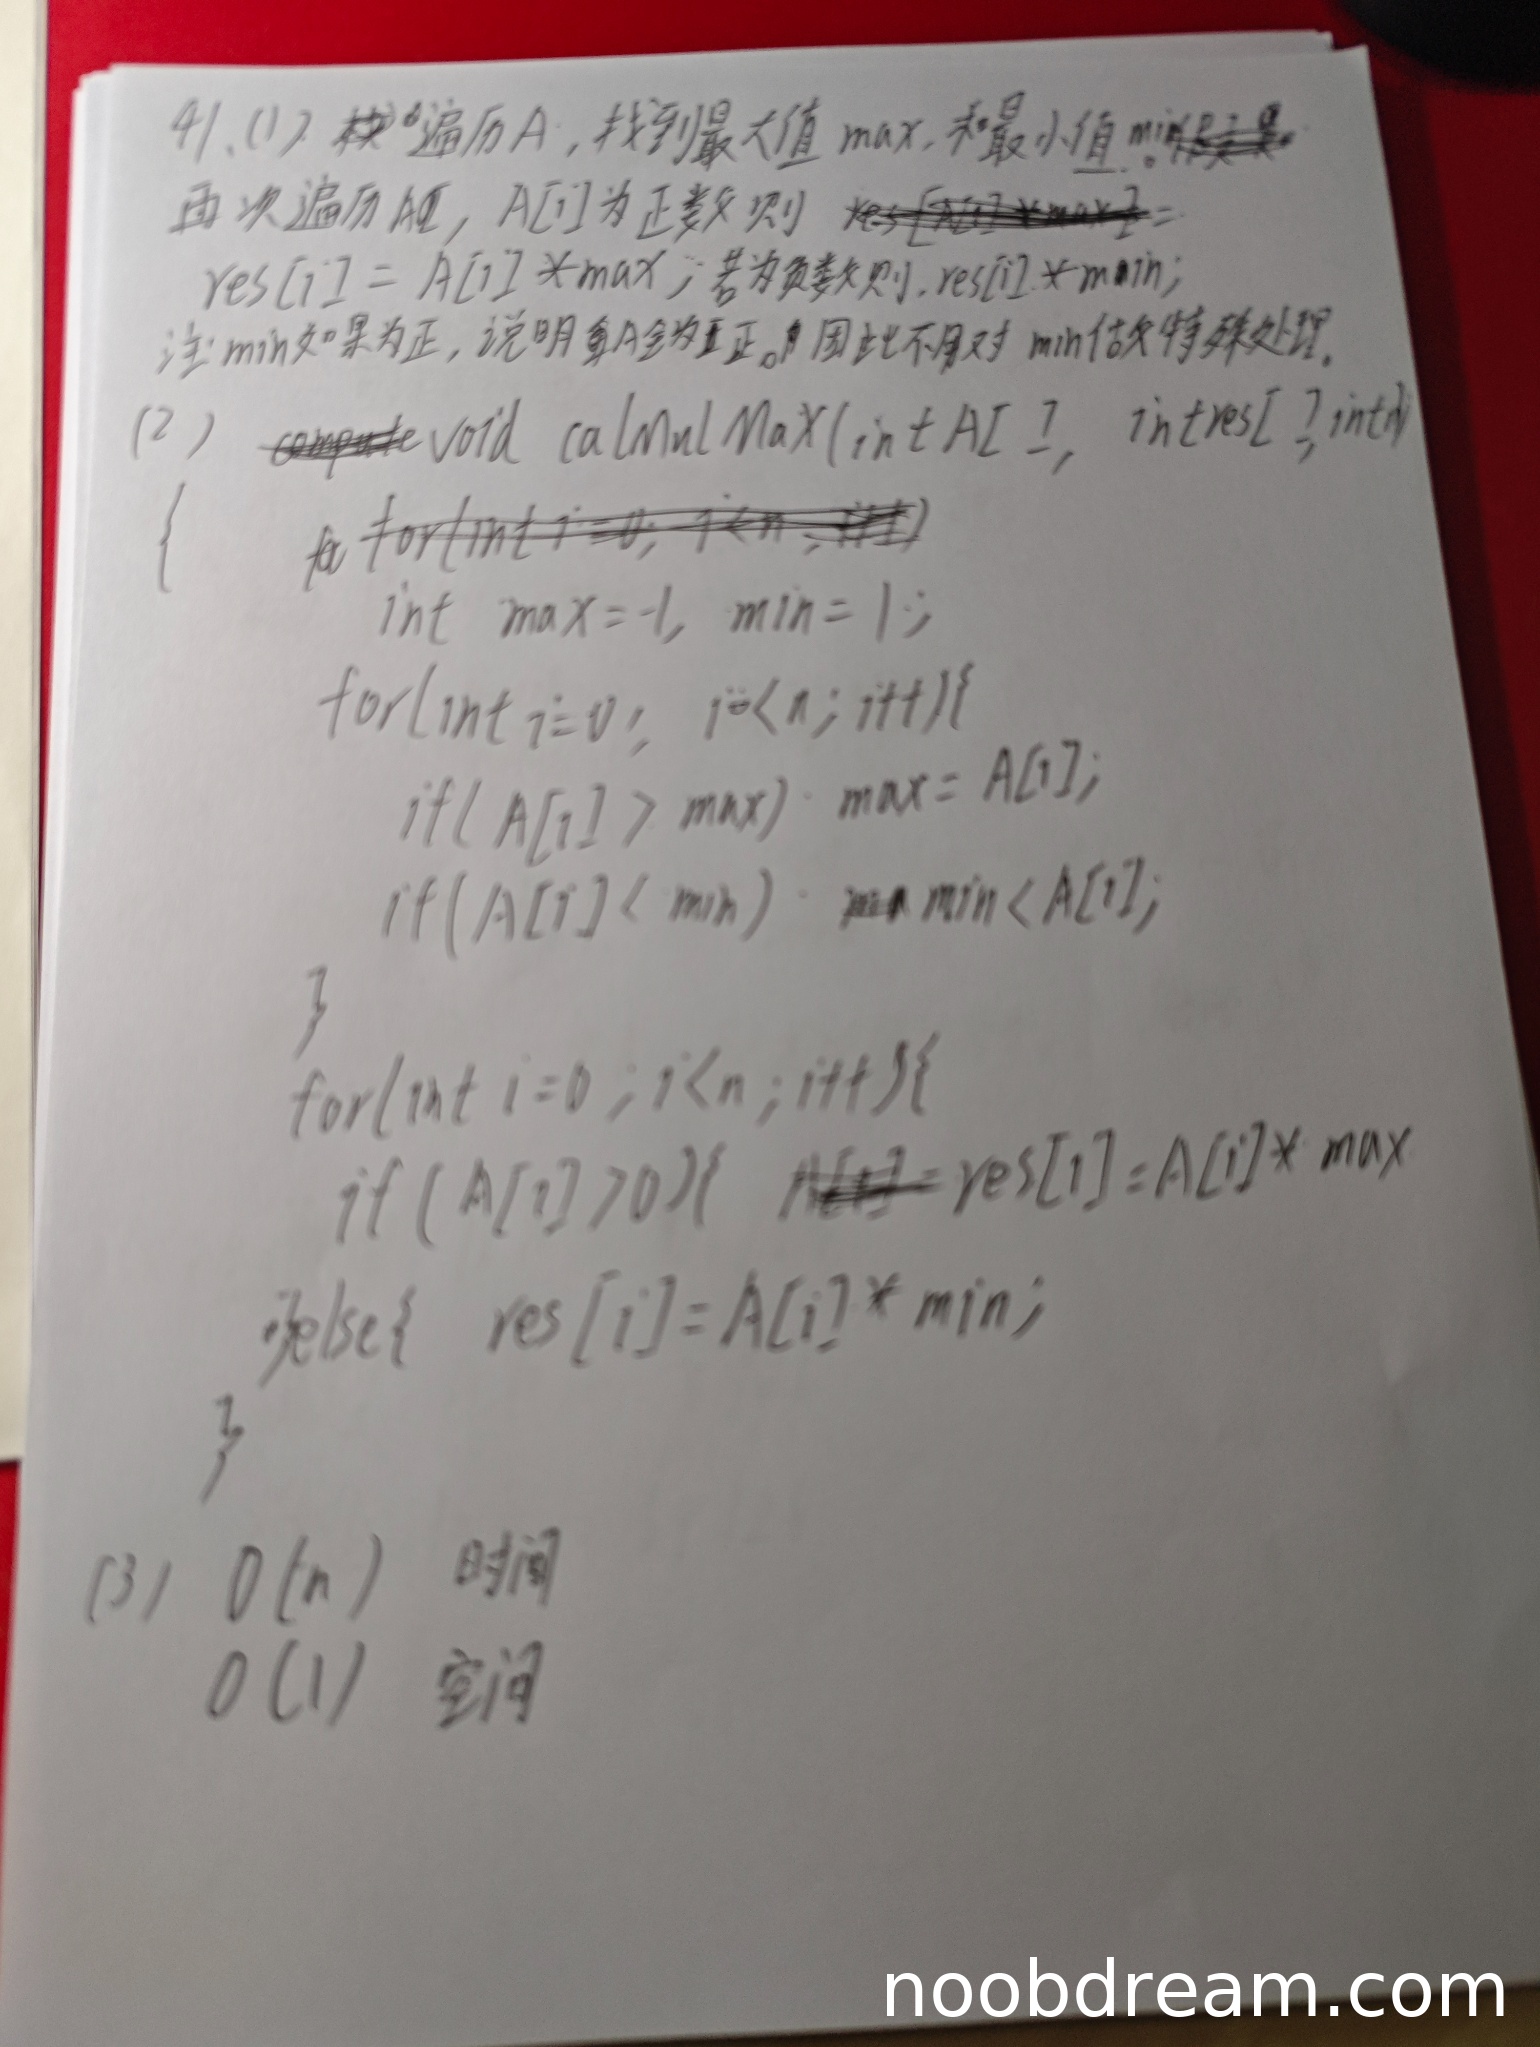 41.(1) 遍历A,找到最大值 max,和最小值 min。
再次遍历A,A[i]为正数则
res[i] = A[i] *max;若为负数则.res[i].*min;
注:min如果为正,说明A全为正。因此不用对 min做特殊处理.
(2) void calMulMaX(int A[ ], int res[ ], int n)
{
int max=-1, min=1;
for(int i=0; i<n; i++){
if(A[i] > max) max= A[i];
if(A[i]< min) min<A[i];
}
for(int i=0;i<n;i++){
if(A[i]>0){ res[i]=A[i]* max
}else{ res[i]=A[i]* min;
}
(3) O(n) 时间
O(1) 空间
noobdream.com